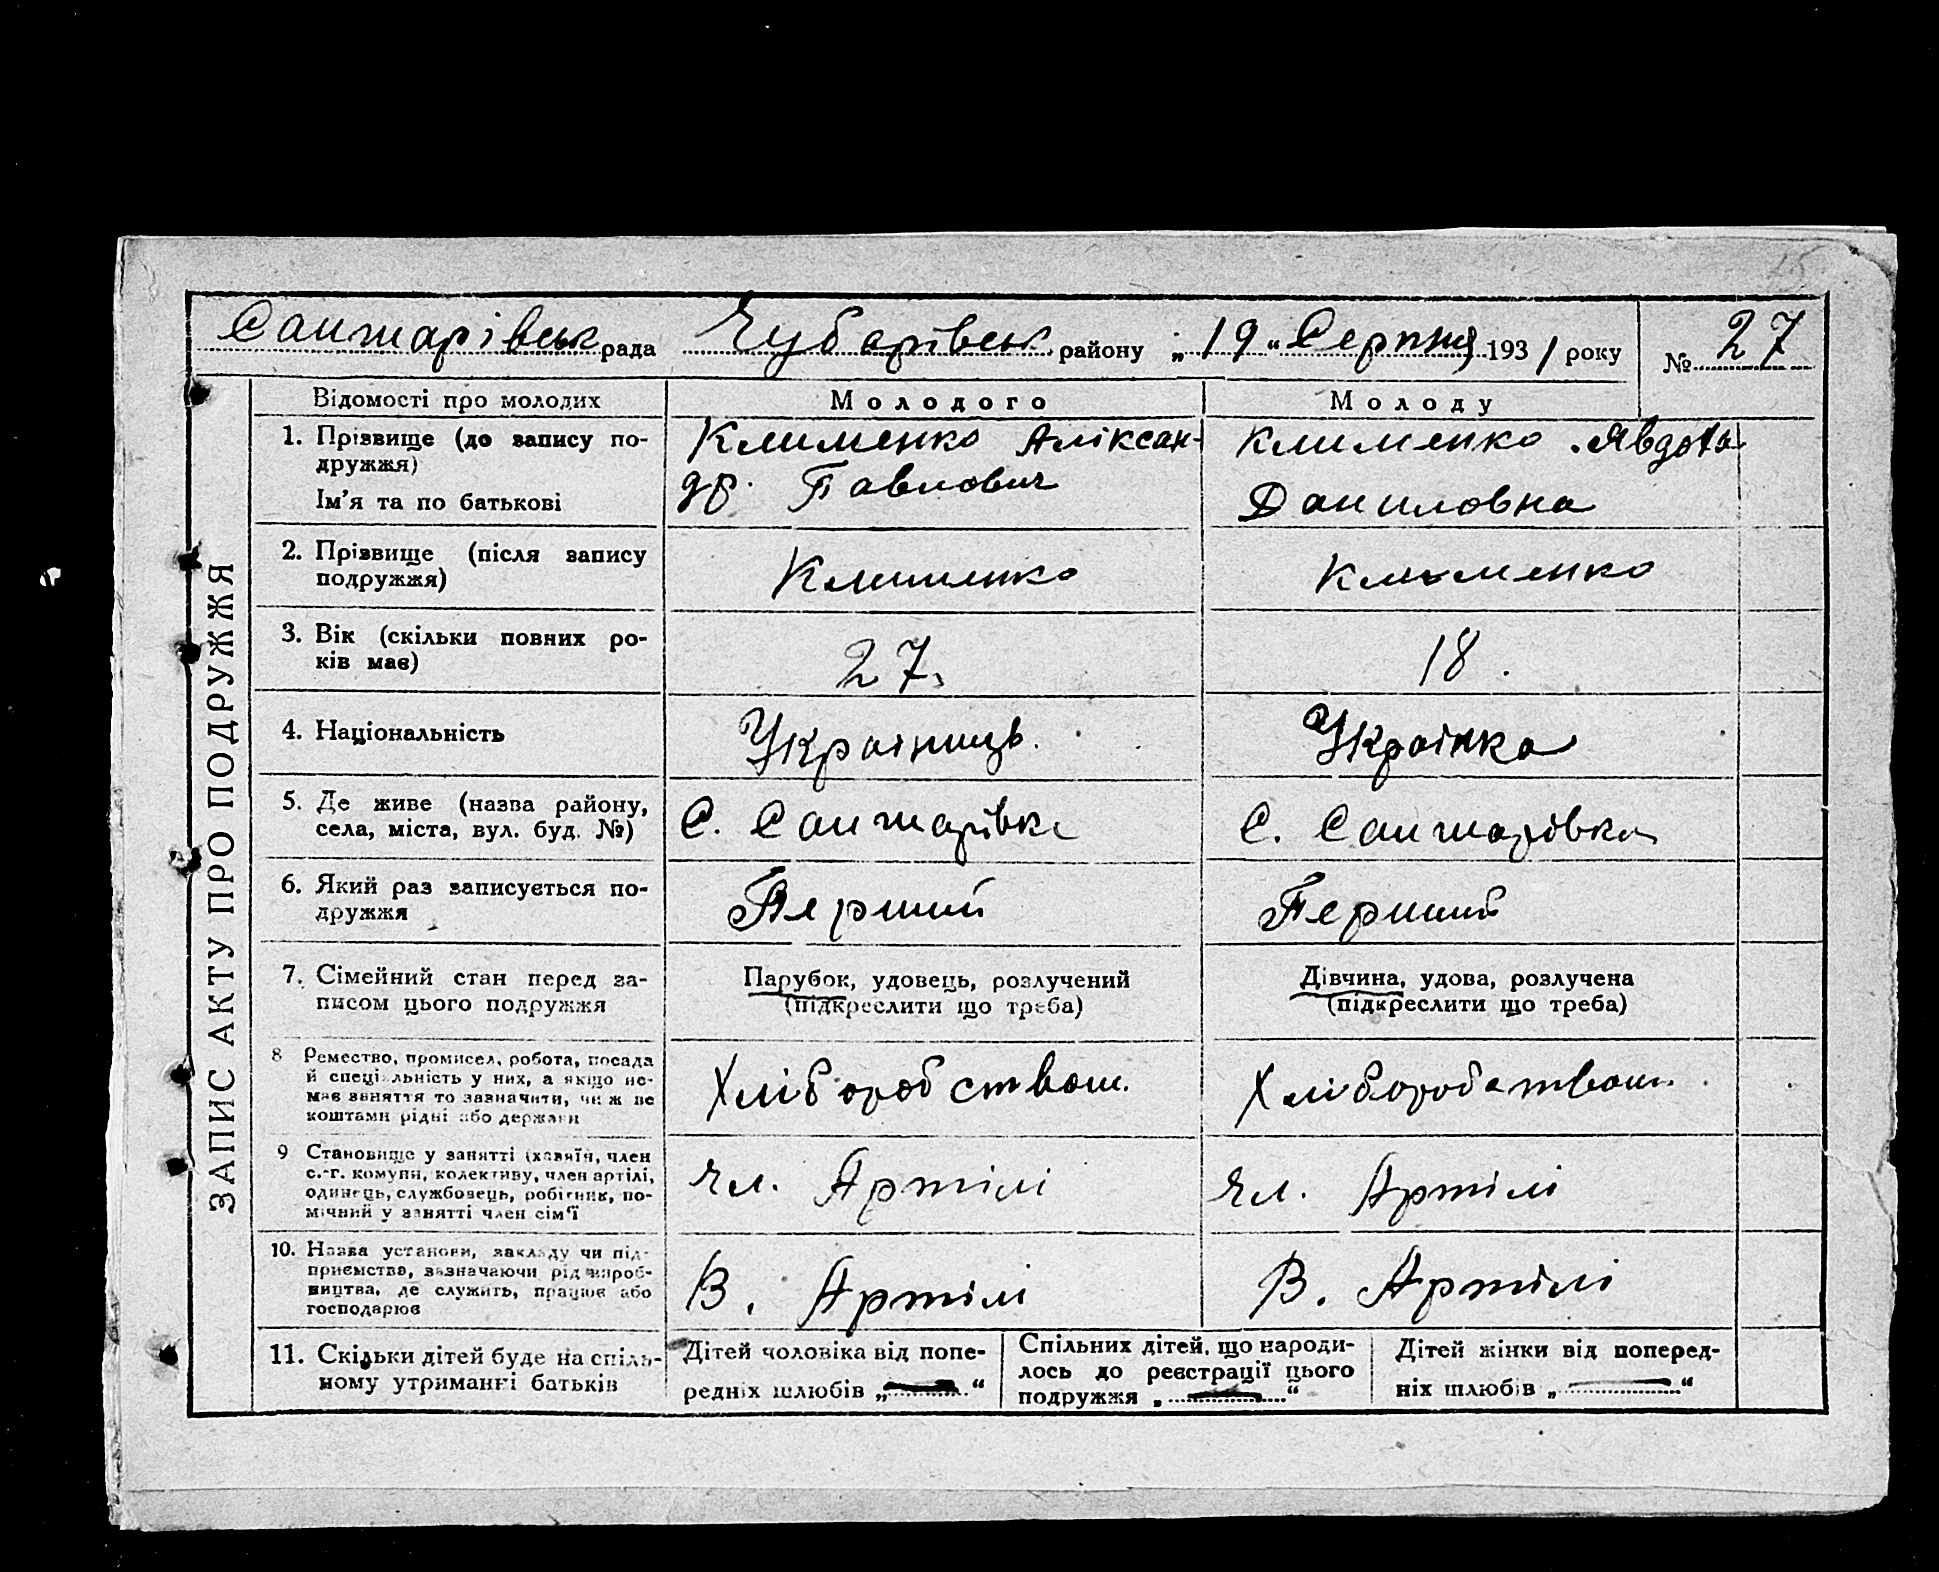 Санжарівськ рада Чубарівськ району „19“ Серпня 1931 року № 27
ЗАПИС АКТУ ПРО ПОДРУЖЖЯ
Відомості про молодих Молодого Молоду
1. Прізвище (до запису по-
дружжя)
Ім'я та по батькові
Клименко Аліксан-
др. Павлович
Клименко Явдоха
Даниловна
2. Прізвище (після запису
подружжя)
Клименко
Клименко
3. Вік (скільки повних ро-
ків має)
27.
18.
4. Національність
Украінець.
Украінка
5. Де живе (назва району,
села, міста, вул. буд. №)
С. Санжарівка
С. Санжарівка
6. Який раз записується по-
дружжя
Перший
Перший
7. Сімейний стан перед за-
писом цього подружжя
Парубок, удовець, розлучений
(підкреслити що треба)
Дівчина, удова, розлучена
(підкреслити що треба)
8 Ремество, промисел, робота, посада
й спеціяльність у них, а якщо не-
має заняття то зазначити, чиж не
коштами рідні або держави
Хліборобством.
Хліборобством.
9 Становище у занятті (хазяїн, член
с.-г. комуни, колективу, член артілі,
одинець, службовець, робітник, по-
мічний у занятті член сім'ї
Чл. Артілі
Чл. Артілі
10. Назва установи, закладу чи під-
приємства, зазначаючи рід вироб-
ництва, де служить, працює або
господарює
В. Артілі
В. Артілі
11. Скільки дітей буде на спіль-
ному утриманні батьків
Дітей чоловіка від попе-
редніх шлюбів „ “
Спільних дітей, що народи-
лось до реєстрації цього
подружжя „ “
Дітей жінки від поперед-
ніх шлюбів „ “